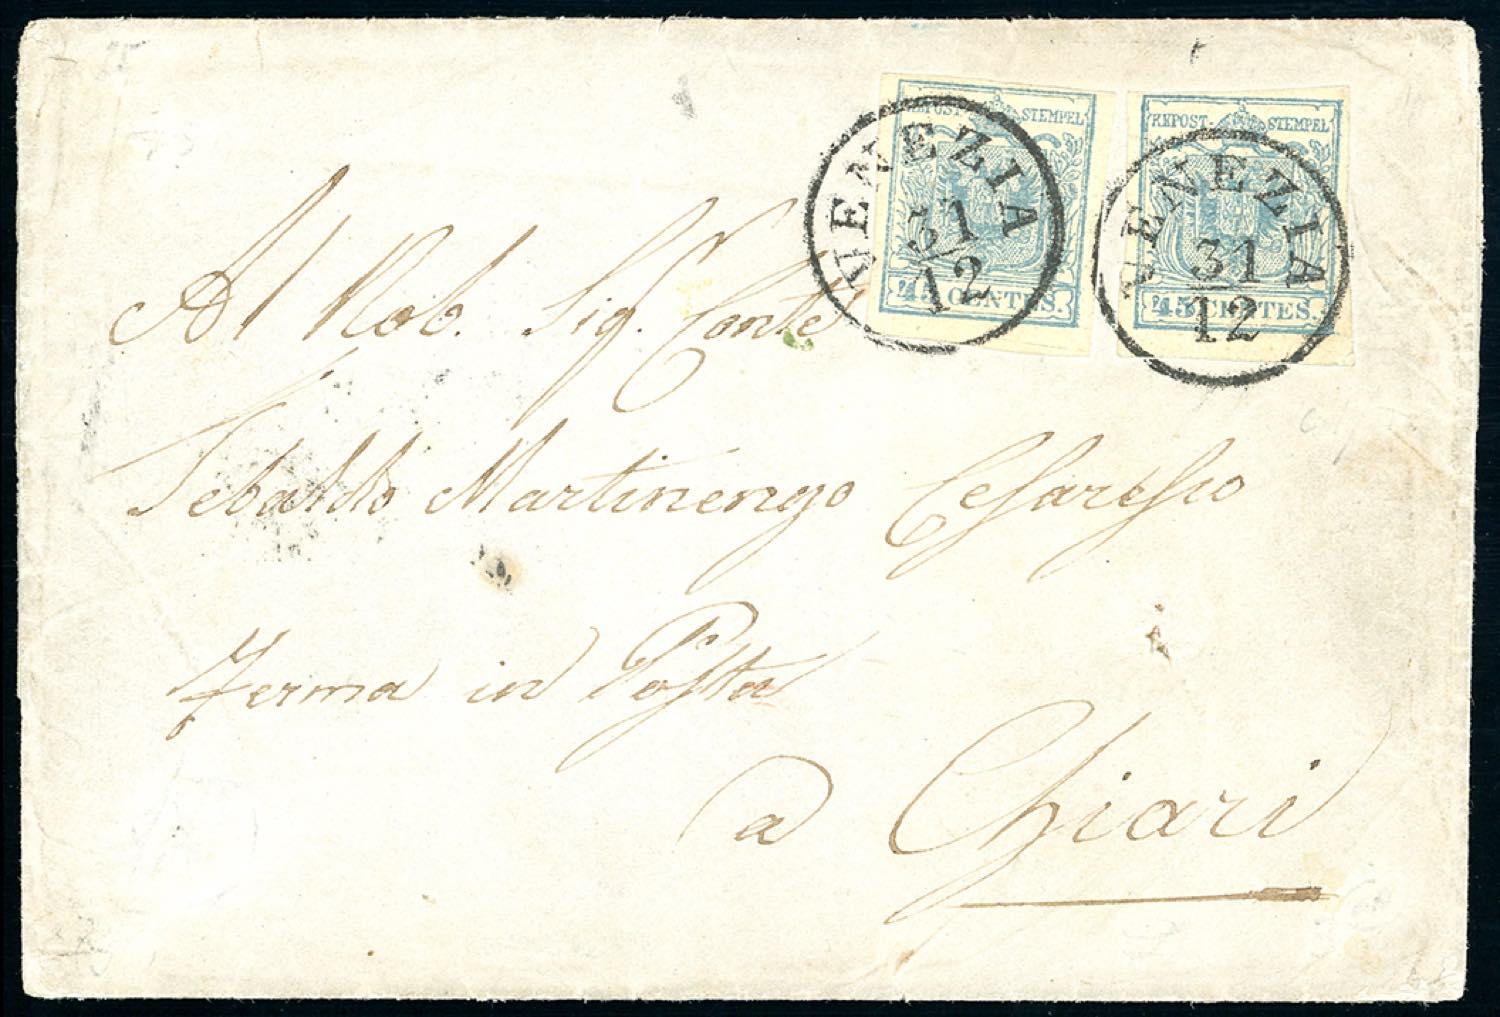 KKPOST-STEMPEL
KKPOST-STEMPEL
VENEZIA
31
12
VENEZIA
31
12
45 CENTES.
45 CENTES.
Al Nob. Sig. Conte
Tebaldo Martinengo Cesaresco
Ferma in Posta
a Chiari